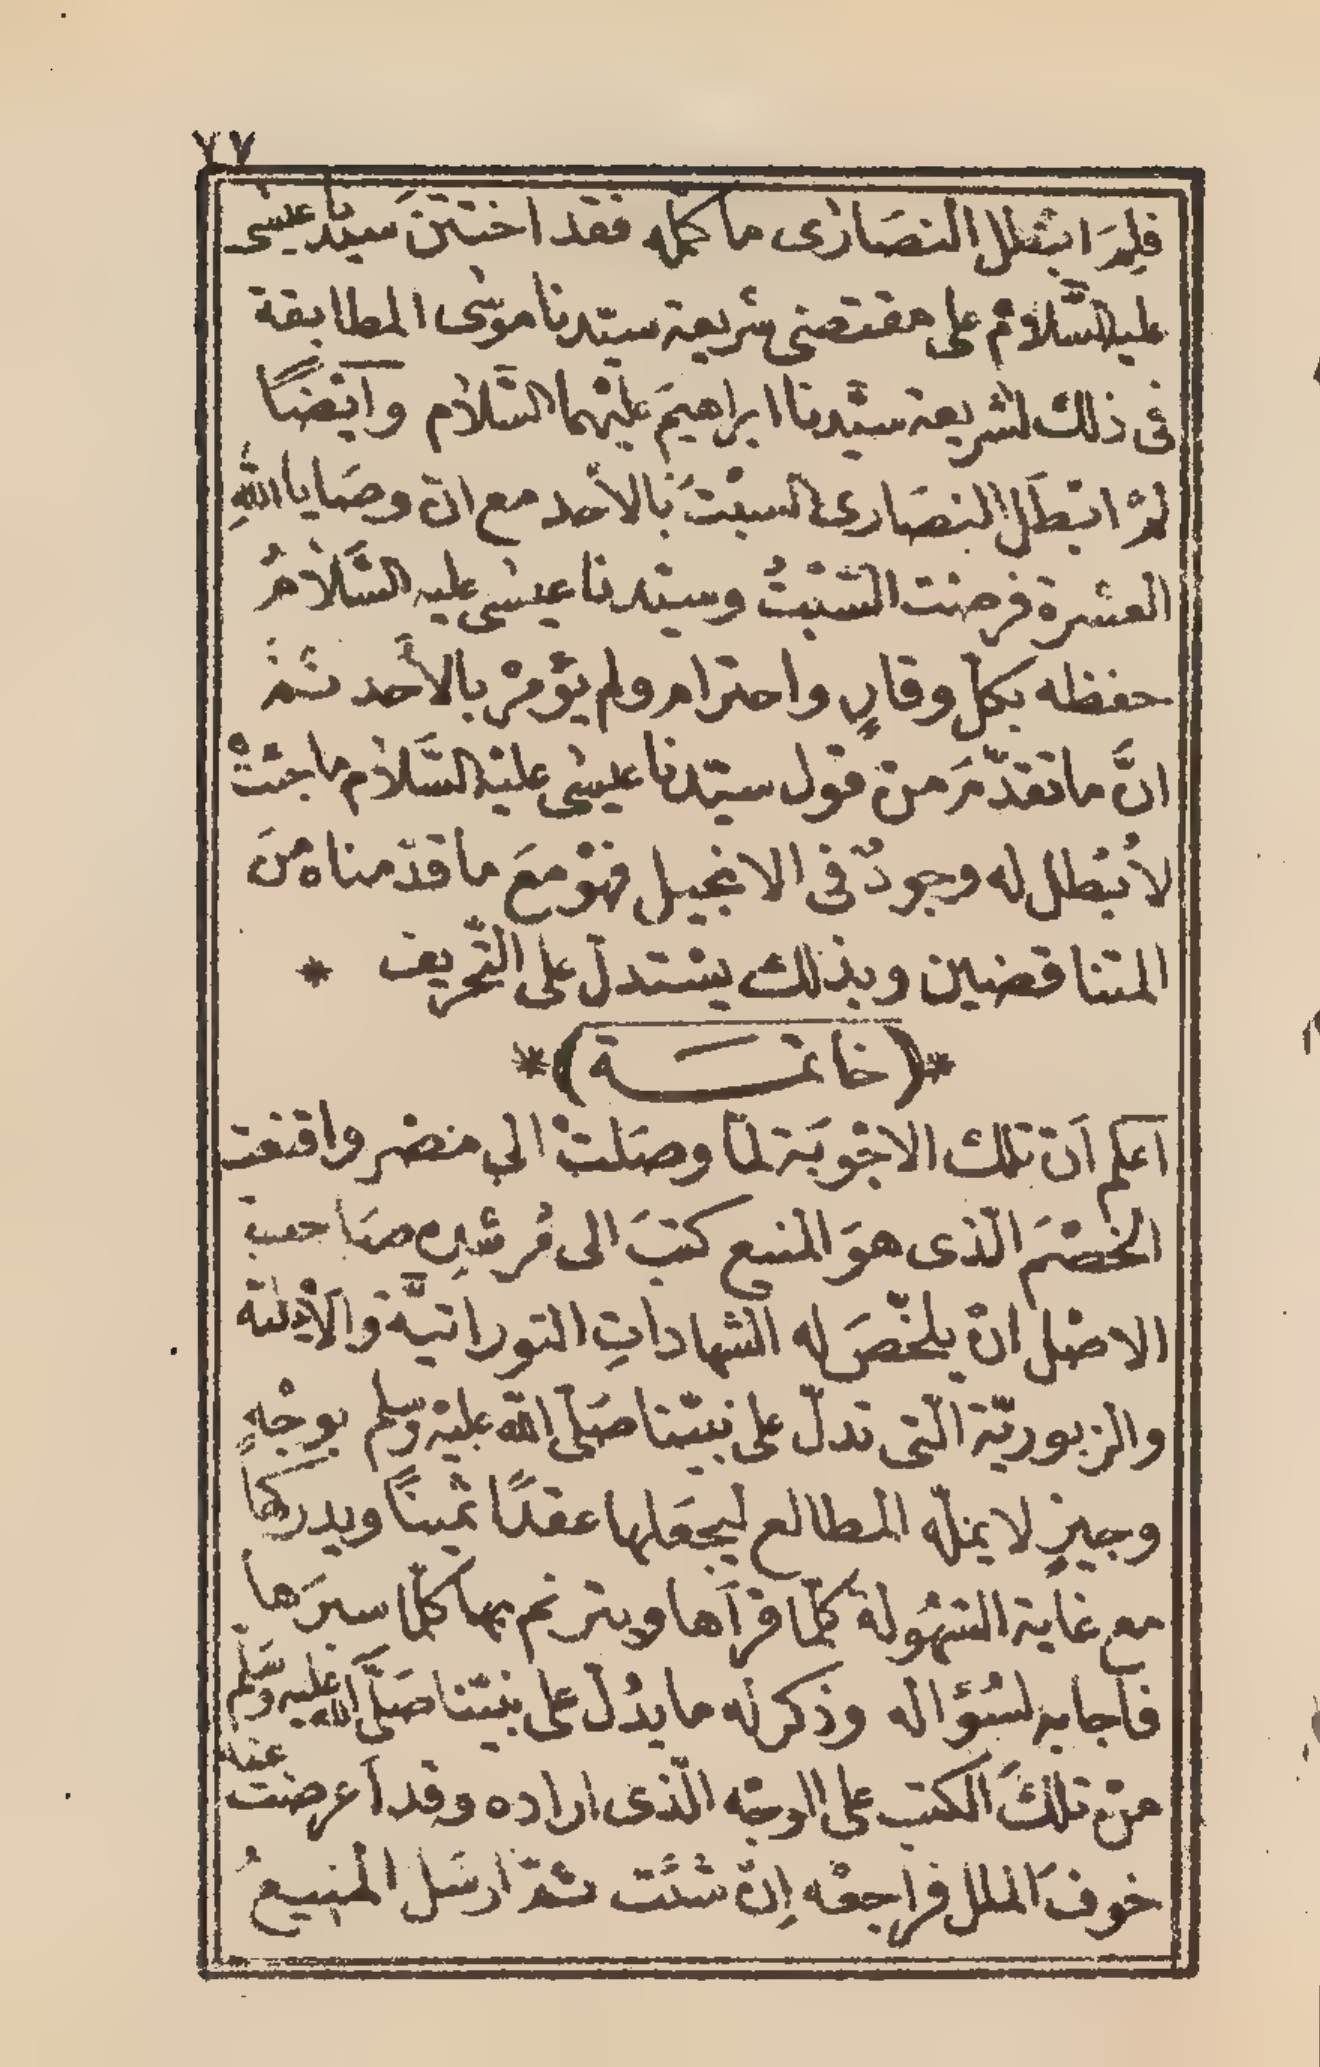 ٧٧
فلِمَ ابْطل النصَارٰى ما كمّله فقد اختتنَ سيدنا عيسٰى
عليه السَّلامُ على مقتضى شريعة سيّدنا موسٰى المطابقة
فى ذلك لشريعة سيّدنا ابراهيمَ عليْهما السَّلام وايْضاً
لِمْ ابْطَل النصَارى السبْتَ بالأحد مع انّ وصَايا اللهِ
العشرة فرضت السّبْتُ وسيّدنا عيسٰى عليه السَّلامُ
حفظه بكلّ وقارٍ واحترام ولم يؤمرْ بالأحد ثمّ
انَّ ما تقدّمَ من قول سيّدنا عيسٰى عليْه السَّلام ما جئتْ
لأبْطل له وجودٌ فى الانجيل فهوْ معَ ما قدّمناه منَ
المتناقضين وبذلك يسْتدلّ على التّحريف *
*(خاتمـــة)*
اعلم انّ تلك الاجْوبَة لمّا وصَلتْ الى مصْر واقنعت
الخصْمَ الّذى هوَ المنيع كتبَ الى مُرشدِه صَاحب
الاصْل انْ يلخّصَ له الشهاداتِ التوراتيَّة والأدلّة
والزبوريّة الّتى تدلّ على نبيّنا صَلّى الله عليْه وسلم بوجْهٍ
وجيزٍ لا يملّه المطالع ليجعَلها عقدًا ثمينًا ويدركها
مع غاية السّهُولة كلّما قرأها ويترنم بها كلّما سبرَها
فأجابه لسُؤاله وذكر له ما يدُلّ على نبيّنا صَلَّى الله عليه وسَلم
منْ تلكَ الكتب على الوجْه الّذى اراده وقد اعرضت عنه
خوفَ الملل فراجعْه إنْ شئت ثمّ ارسَل المنيعُ